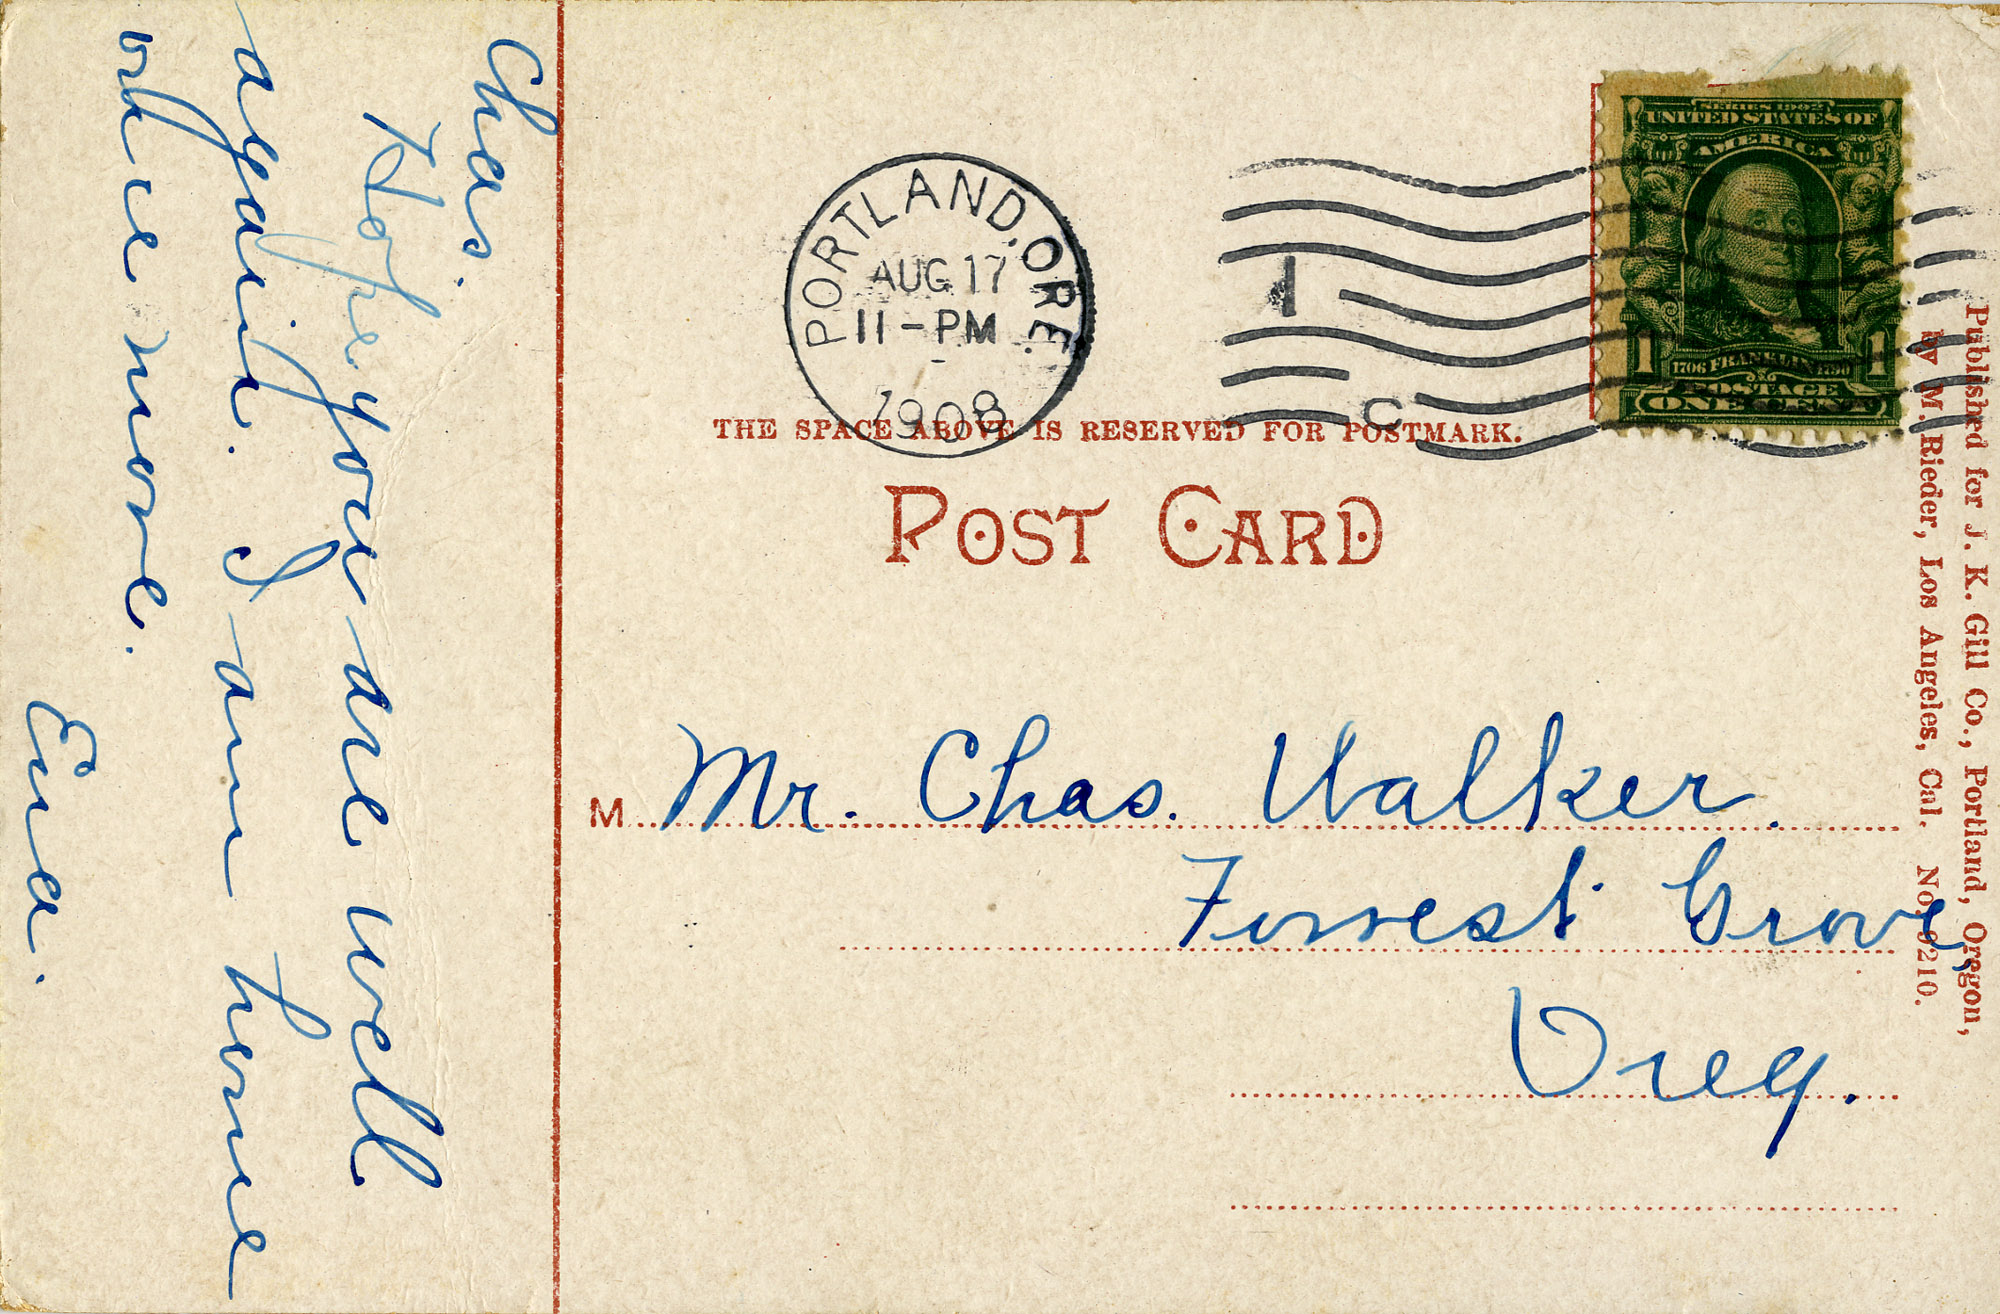 Chas.
Hope you are well
again. I am home
once more.
Ena.
PORTLAND, ORE.
AUG 17
11-PM
1908
1
C
SERIES 1902
UNITED STATES OF
AMERICA
1 1
1706 FRANKLIN 1790
POSTAGE
ONE CENT
THE SPACE ABOVE IS RESERVED FOR POSTMARK.
POST CARD
M Mr. Chas. Walker.
Forrest Grove,
Oreg.
Published for J. K. Gill Co., Portland, Oregon,
by M. Rieder, Los Angeles, Cal. No. 9210.